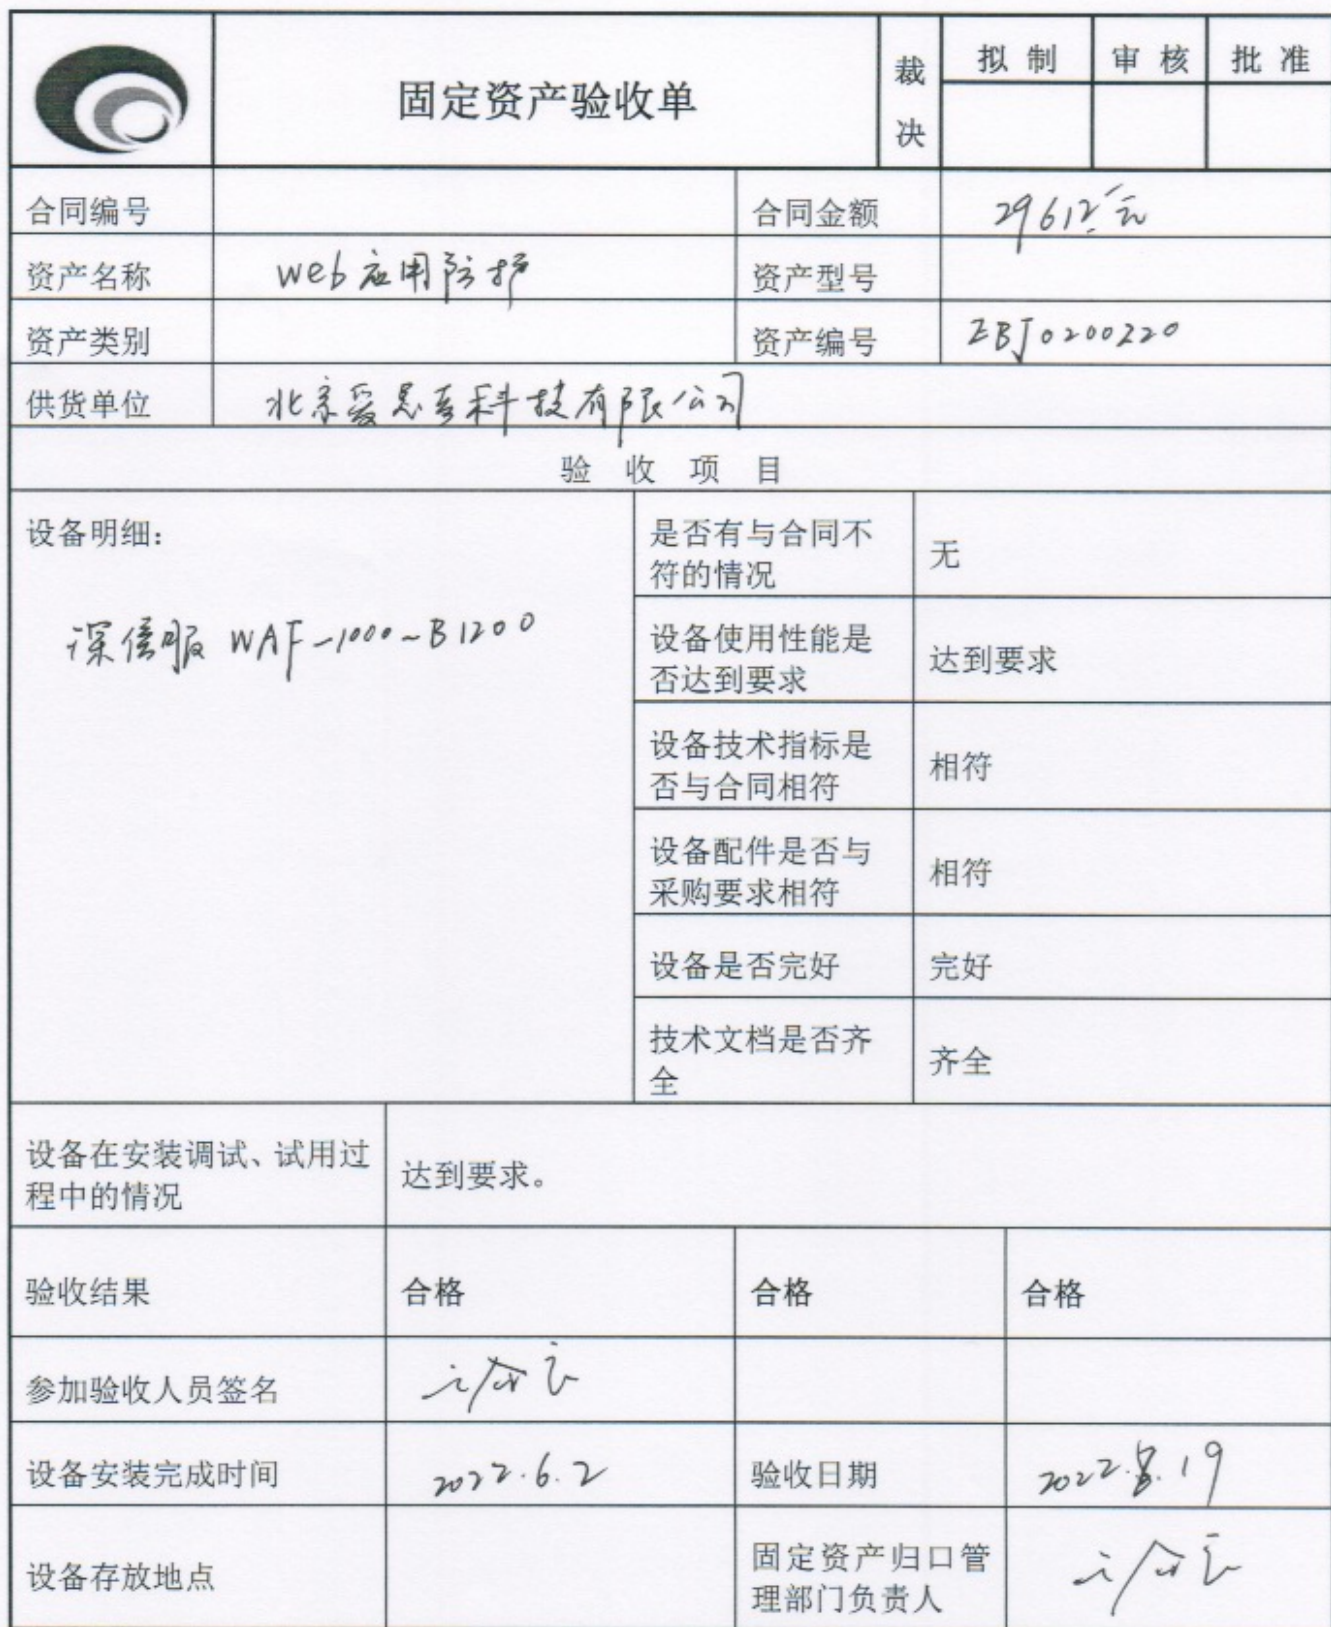 固定资产验收单
裁决
拟制 审核 批准
合同编号
合同金额 29612元
资产名称 web应用防护
资产型号
资产类别
资产编号 ZBJ0200220
供货单位 北京爱思考科技有限公司
验收项目
设备明细：
深信服 WAF-1000-B1200
是否有与合同不
符的情况
无
设备使用性能是
否达到要求
达到要求
设备技术指标是
否与合同相符
相符
设备配件是否与
采购要求相符
相符
设备是否完好
完好
技术文档是否齐
全
齐全
设备在安装调试、试用过
程中的情况
达到要求。
验收结果 合格 合格 合格
参加验收人员签名
设备安装完成时间 2022.6.2 验收日期 2022.8.19
设备存放地点
固定资产归口管
理部门负责人